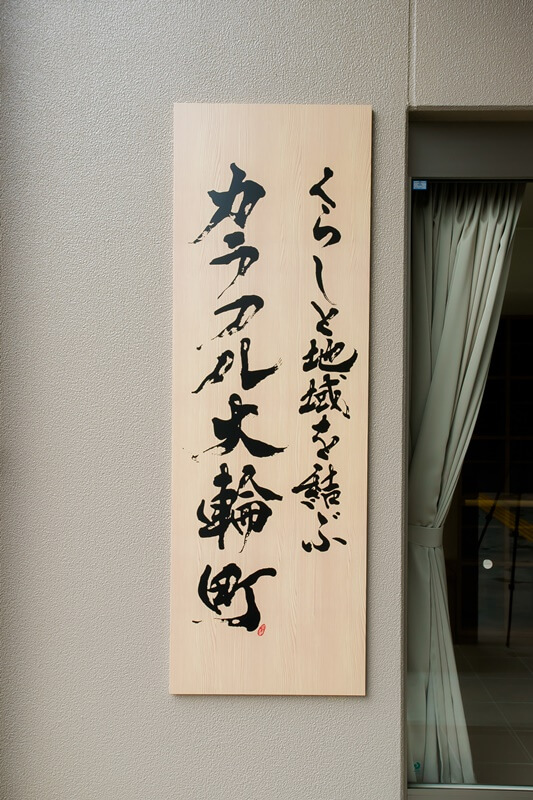 くらしと地域を結ぶ
カラフル大輪町